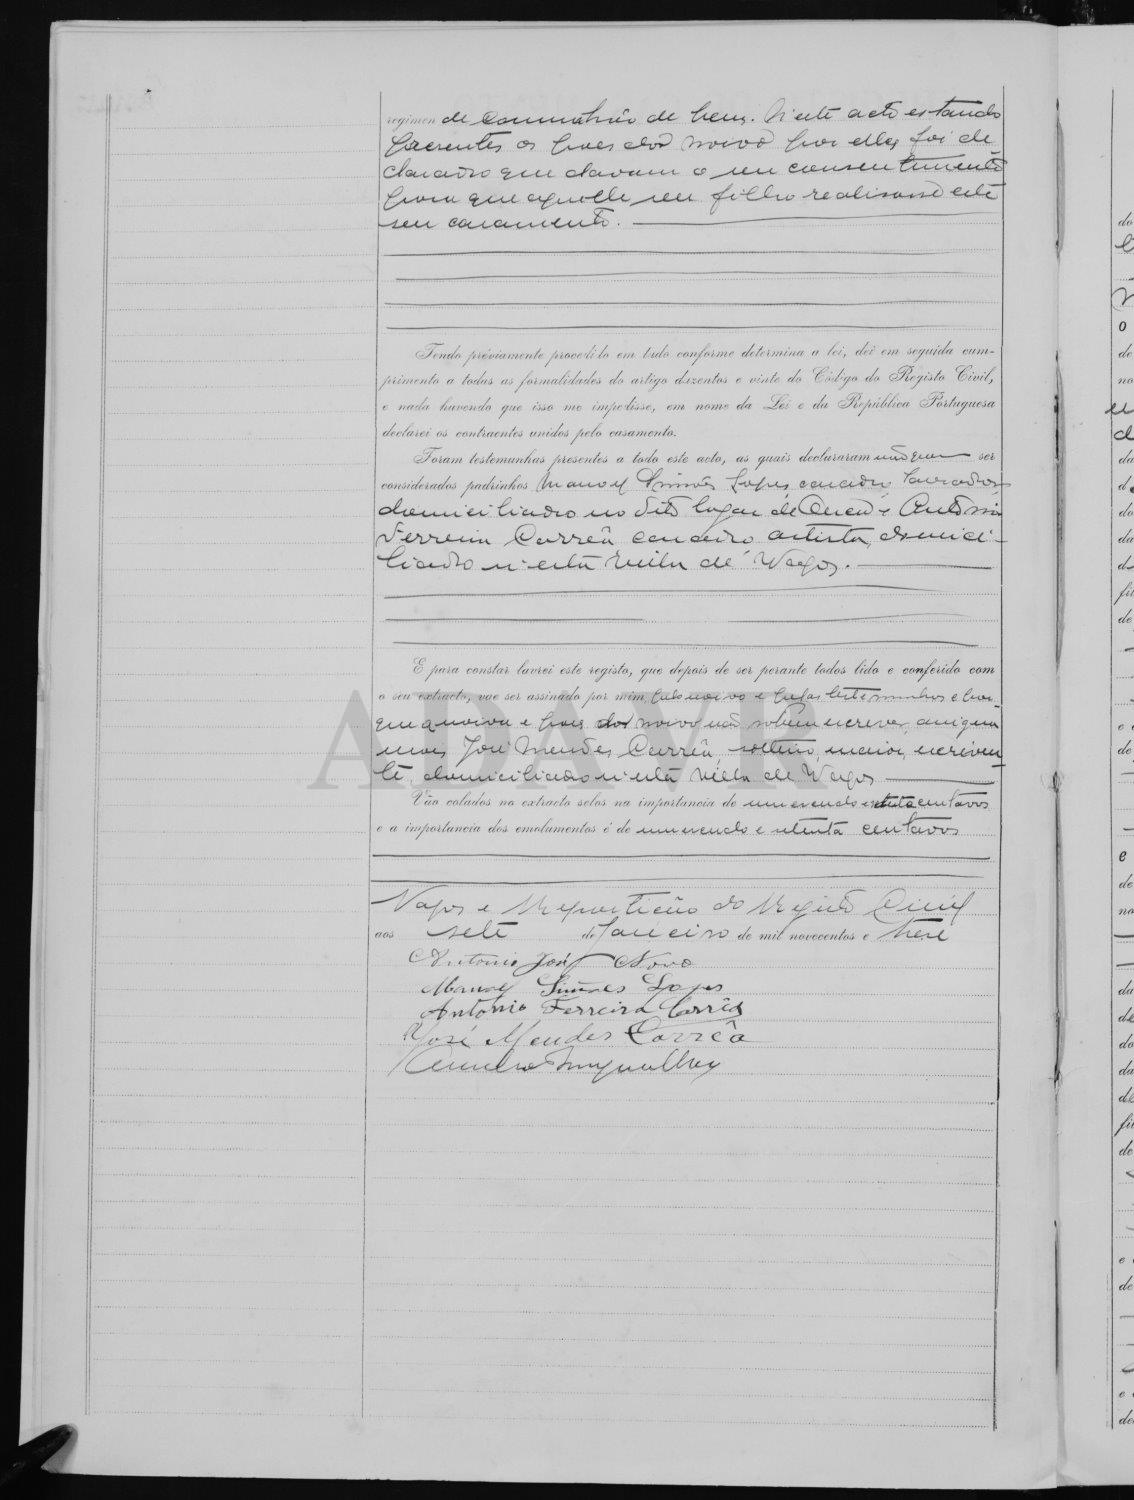 regimen de communhão de bens. N'este acto estando
presentes os paes do noivo por elles foi de-
clarado que davam o seu consentimento
para que aquelle seu filho realisasse este
seu casamento.
Tendo préviamente procedido em tudo conforme determina a lei, dei em seguida cum-
primento a todas as formalidades do artigo duzentos e vinte do Código do Registo Civil,
e nada havendo que isso me impedisse, em nome da Lei e da República Portuguesa
declarei os contraentes unidos pelo casamento.
Foram testemunhas presentes a todo este acto, as quais declararam não quer ser
considerados padrinhos Manoel Simões Lopes, casado, lavrador,
domiciliado no dito lugar de e Antonio
Ferreira Corrêa casado artista, domici-
liado n'esta villa de Vagos.
E para constar lavrei este registo, que depois de ser perante todos lido e conferido com
o seu extracto, vae ser assinado por mim, pelo noivo e pelas testemunhas e por-
que a noiva e paes do noivo não sabem escrever, assigna
mais José Mendes Corrêa, solteiro, maior, escreven-
te, domiciliado n'esta villa de Vagos
Vão colados no extracto selos na importancia de um escudo e centavos
e a importancia dos emolumentos é de um escudo e setenta centavos
Vagos e Repartição do Registo Civil
aos sete de Janeiro de mil novecentos e treze
Antonio José Novo
Manoel Simões Lopes
Antonio Ferreira Corrêa
José Mendes Corrêa
ADAVR
do
de
no
da
do
da
fi
de
e
de
e
de
no
da
de
do
da
de
fi
de
e
de
e
de